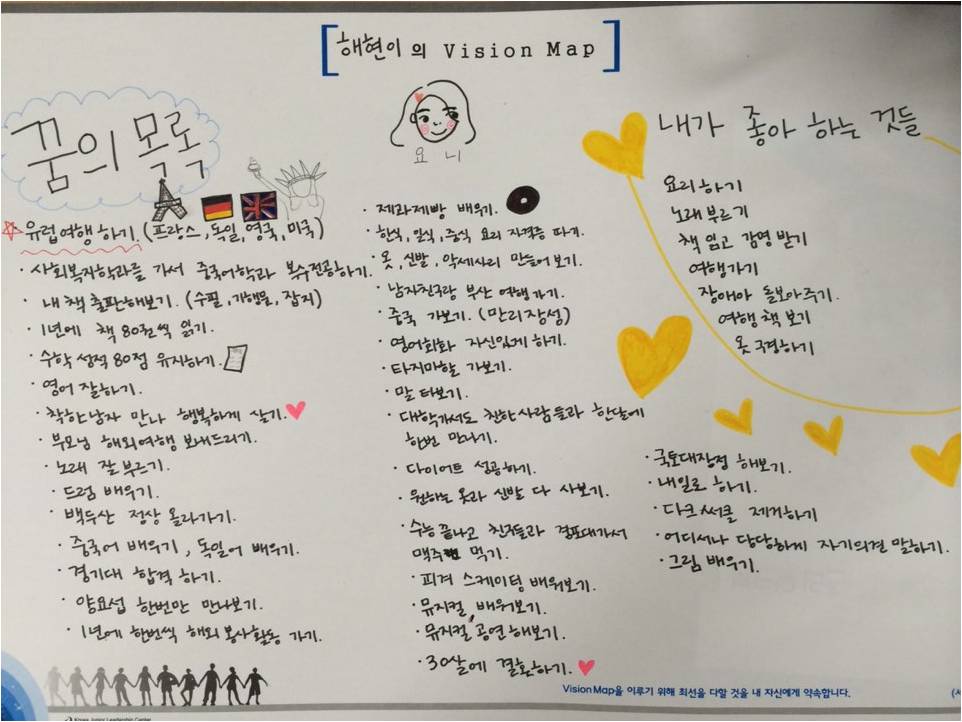 [해현이의 Vision Map]
꿈의 목록
요니
유럽여행 하기. (프랑스, 독일, 영국, 미국)
· 사회복지학과를 가서 중국어학과 복수전공하기.
· 내 책 출판해보기. (수필, 기행문, 잡지)
· 1년에 책 80권씩 읽기.
· 수학 성적 80점 유지하기.
· 영어 잘하기.
· 착한남자 만나 행복하게 살기.
· 부모님 해외여행 보내드리기.
· 노래 잘 부르기.
· 드럼 배우기.
· 백두산 정상 올라가기.
· 중국어 배우기, 독일어 배우기.
· 경기대 합격 하기.
· 양요섭 한번만 만나보기.
· 1년에 한번씩 해외 봉사활동 가기.
· 제과제빵 배우기.
· 한식, 일식, 중식 요리 자격증 따기.
· 옷, 신발, 악세사리 만들어 보기.
· 남자친구랑 부산 여행가기.
· 중국 가보기. (만리장성)
· 영어회화 자신있게 하기.
· 타지마할 가보기.
· 말 타보기.
· 대학가서도 친한사람들과 한달에
한번 만나기.
· 다이어트 성공하기.
· 원하는 옷과 신발 다 사보기.
· 수능 끝나고 친구들과 경포대가서
맥주 먹기.
· 피겨 스케이팅 배워보기.
· 뮤지컬 배워보기.
· 뮤지컬 공연해보기.
· 30살에 결혼하기.
내가 좋아 하는 것들
요리하기
노래 부르기
책 읽고 감명 받기
여행가기
장애아 돌보아주기.
여행 책 보기
옷 구경하기
· 국토대장정 해보기.
· 내일로 하기.
· 다크써클 제거하기
· 어디서나 당당하게 자기의견 말하기.
· 그림 배우기.
Vision Map을 이루기 위해 최선을 다할 것을 내 자신에게 약속합니다.
(서
Korea Junior Leadership Center